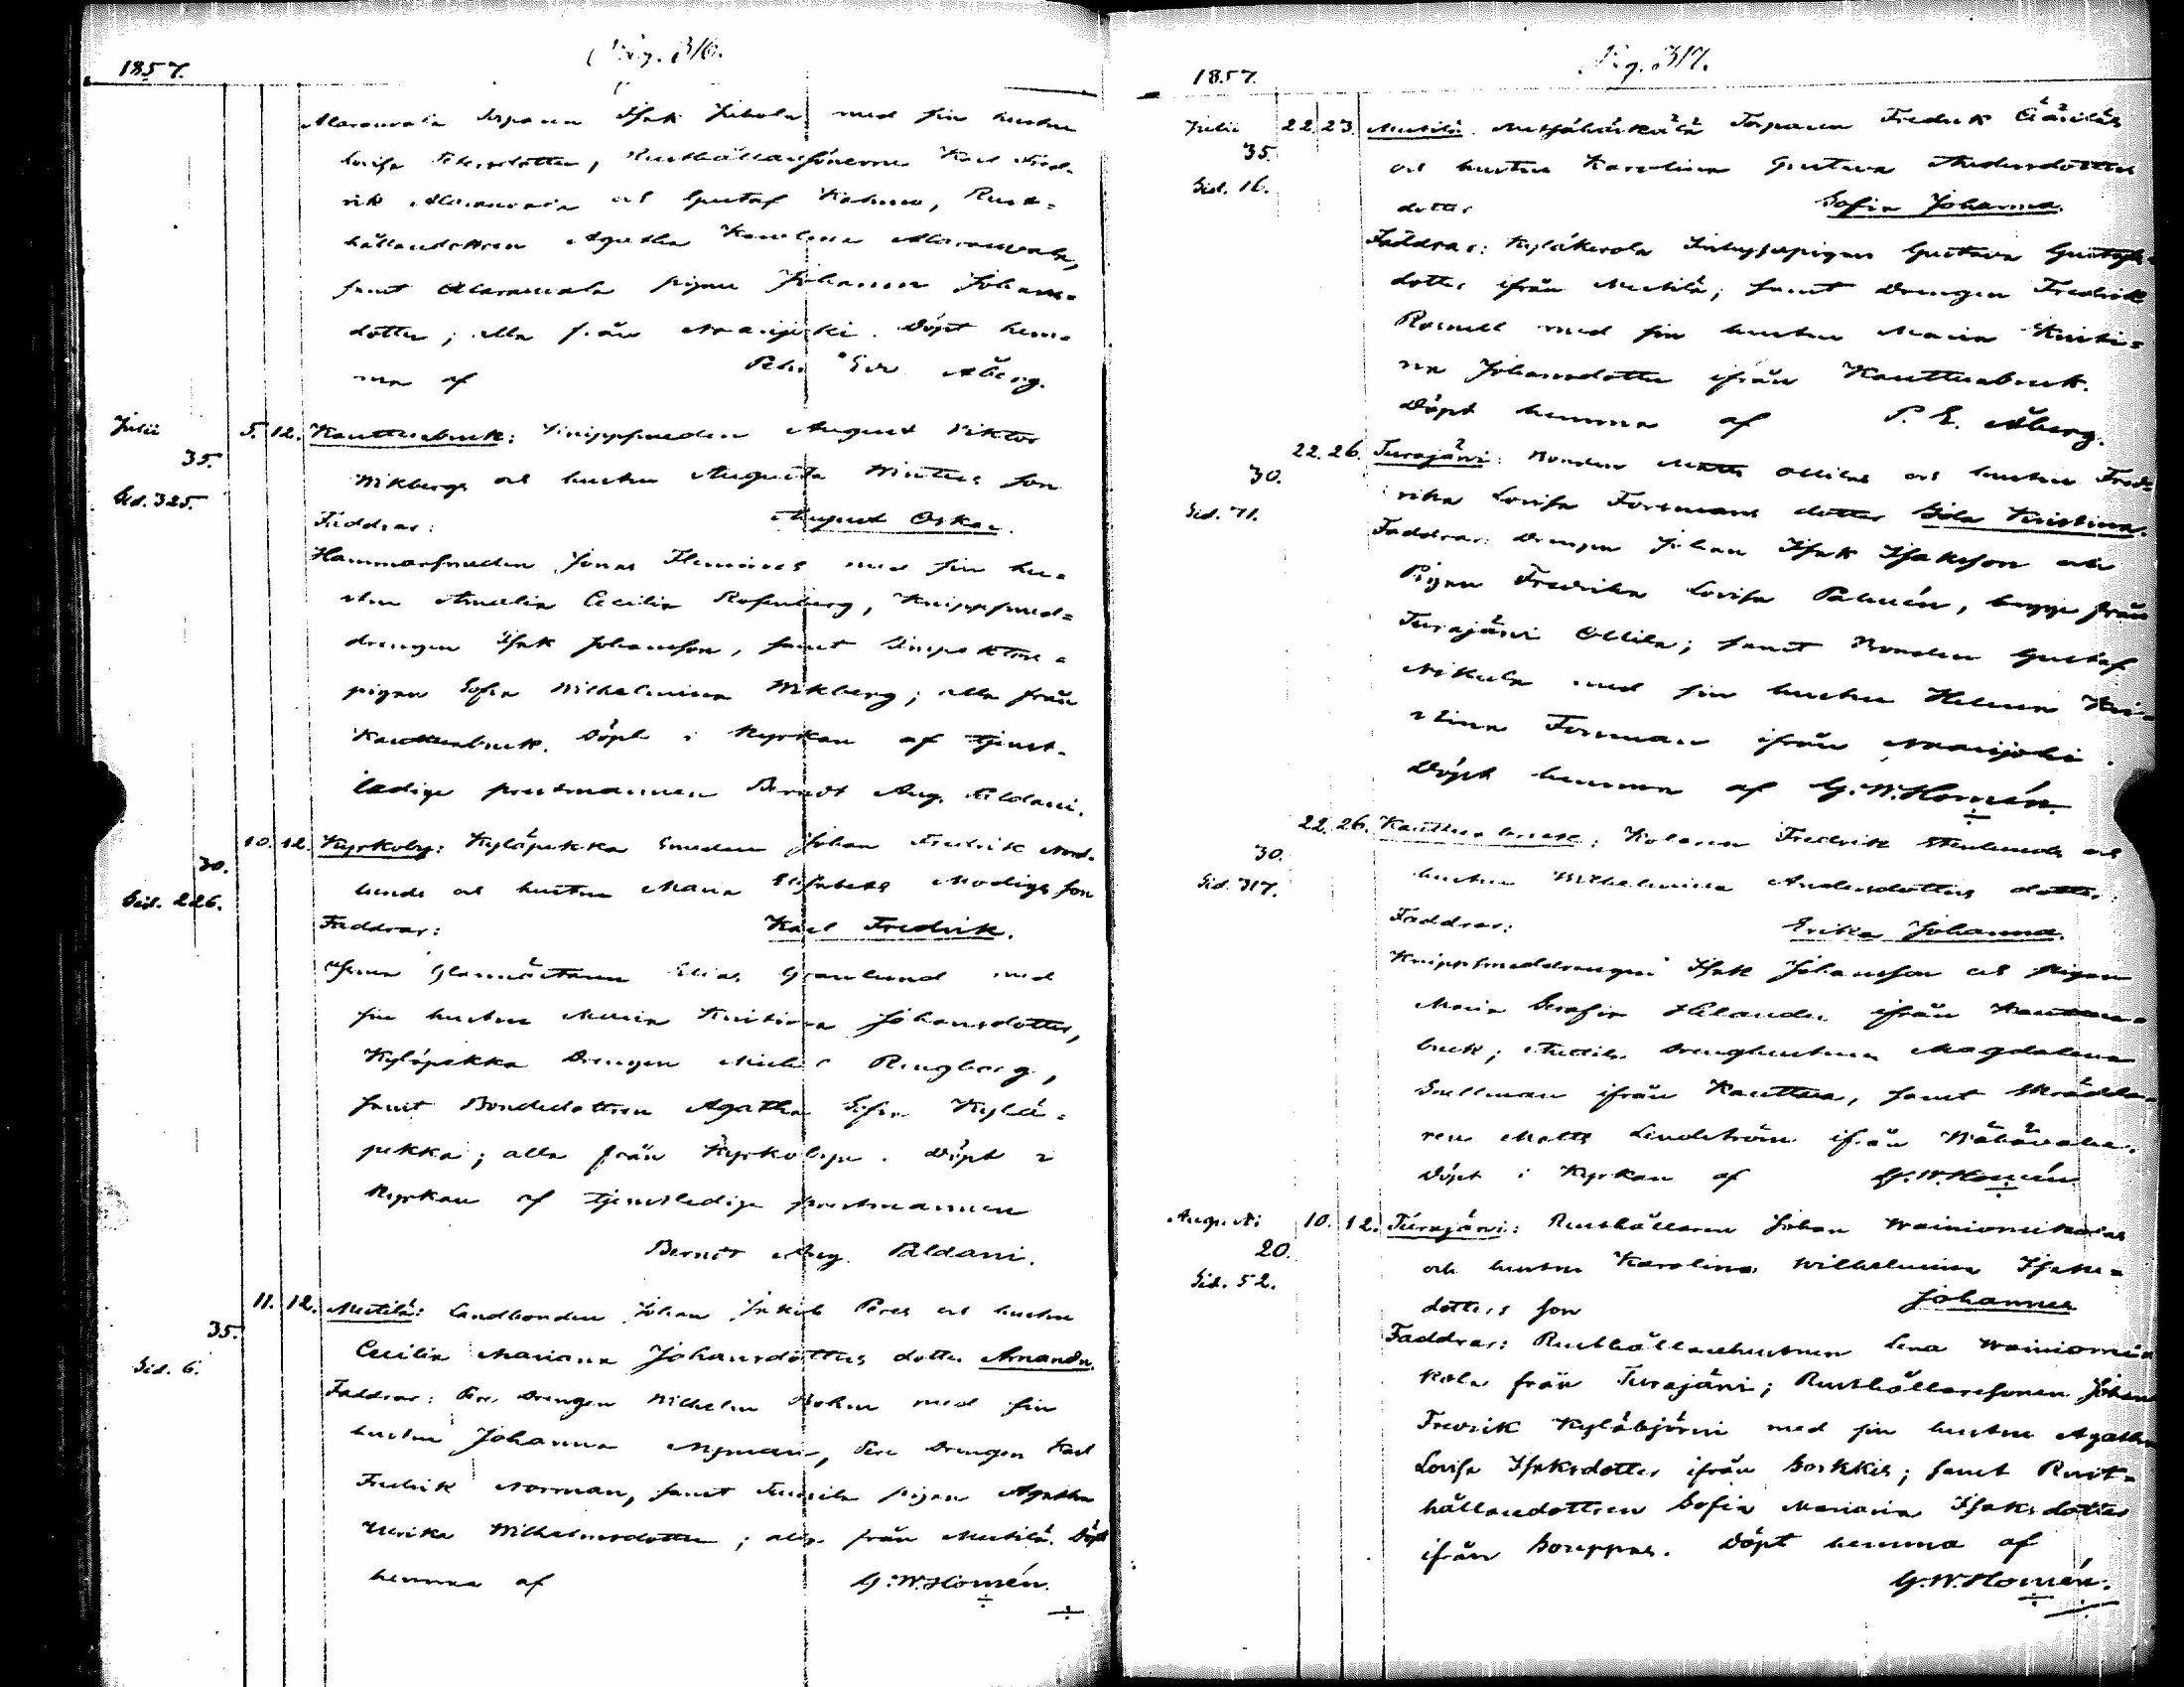 1857.
Pag. 316.
Torparen Isak med sin hustru
Lovisa, Rusthållaresönerne Karl Fred-
rik och Gustaf, Rust-
hållaredottren Agatha Karolina
samt pigan Johanna Johans-
dotter; alla från Naarijoki. Döpt hem-
ma af Pehr Åberg.
Julii 5. 12. Kauttuabruk: Knippsmeden August Viktor
35. Wikbergs och hustru Augusta Winters son
Sid. 325. Faddrar: August Oskar.
Hammarsmeden Jonas med sin hu-
stru Amalia Cecilia Rosenberg, Knippsmed-
drengen Isak Johansson, samt
pigan Sofia Wilhelmina Wikberg; alla från
Kauttuabruk. Döpt i Kyrkan af tjenst-
ledige prestmannen Berndt Aug. Paldani.
10. 12. Kyrkoby: Kyläpekka Smeden Johan Fredrik Nord-
30. lunds och hustru Maria Elisabeth Modigs son
Sid. 226. Faddrar: Karl Fredrik.
Elias Grönlund med
sin hustru Maria Kristina Johansdotter,
Kyläpekka Drengen Michel Ringberg,
samt Bondedottren Agatha Sofia Kylä-
pekka; alla från Kyrkobyn. Döpt i
Kyrkan af tjenstledige prestmannen
Berndt Aug. Paldani.
11. 12. Mestilä: Landbonden Johan Jakob Peres och hustru
35. Cecilia Mariana Johansdotters dotter Amanda.
Sid. 6. Faddrar: Pere Drengen Wilhelm Bohm med sin
hustru Johanna Nyman, Pere Drengen Karl
Fredrik Norman, samt pigan Agatha
Ulrika Wilhelmsdotter; alla från Mestilä. Döpt
hemma af G. W. Homén.
1857.
Pag. 317.
Julii 22. 23. Mestilä. Torparen Fredrik
35. och hustru Karolina Gustava Andersdotters
Sid. 16. dotter Sofia Johanna.
Faddrar: Inhysespigan Gustava Gustafs-
dotter ifrån Mestilä; samt Drengen Fredrik
med sin hustru Maria Kristi-
na Johansdotter ifrån Kauttuabruk.
Döpt hemma af P. E. Åberg.
22. 26. Turajärvi: Bonden Matts Ollilas och hustru Fred-
30. rika Lovisa Forsmans dotter Ida Kristina.
Sid. 71. Faddrar: Drengen Johan Isak Isaksson och
Pigan Fredrika Lovisa Palmén, begge från
Turajärvi Ollila; samt Bonden Gustaf
Nikula med sin hustru Helena Kri-
stina Forsman ifrån Naarijoki.
Döpt hemma af G. W. Homén.
22. 26. Kauttuabruk: Kolaren Fredrik Stenlunds och
30. hustru Wilhelmina Andersdotters dotter:
Sid. 317. Faddrar: Erika Johanna.
Knippsmeddrengen Isak Johansson och Pigan
Maria Serafia Helander ifrån Kauttua-
bruk; Drenghustrun Magdalena
Snellman ifrån Kauttua, samt Skrädda-
ren Matts Lindström ifrån
Döpt i Kyrkan af G. W. Homén
Augusti 10. 12. Turajärvi: Rusthållaren Johan Wainiomikolas
20. och hustru Karolina Wilhelmina Isaks-
Sid. 52. dotters son Johannes
Faddrar: Rusthållarehustrun Lena Wainiomi-
kola från Turajärvi; Rusthållaresonen Johan
Fredrik med sin hustru Agatha
Lovisa Isaksdotter ifrån; samt Rust-
hållaredottren Sofia Mariana Isaksdotter
ifrån. Döpt hemma af
G. W. Homén.